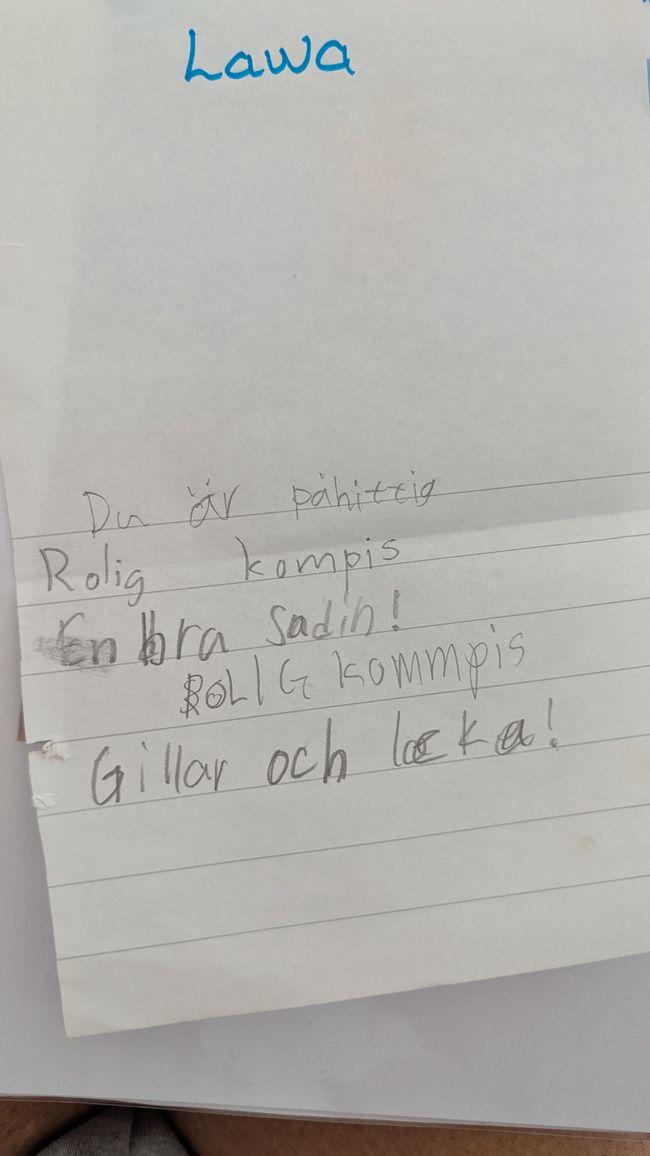 Lawa
Du är påhittig
Rolig kompis
En bra Sadin!
ROLIG kommpis
Gillar och leka!